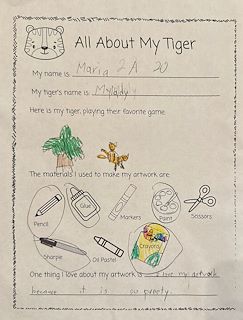 All About My Tiger
My name is Maria 2A 20
My tiger's name is
Here is my tiger, playing their favorite game
The materials I used to make my artwork are
Pencil Glue Markers Paint Scissors
Sharpie Oil Pastel Crayons
One thing I love about my artwork is I love my artwork
because it is so preety.